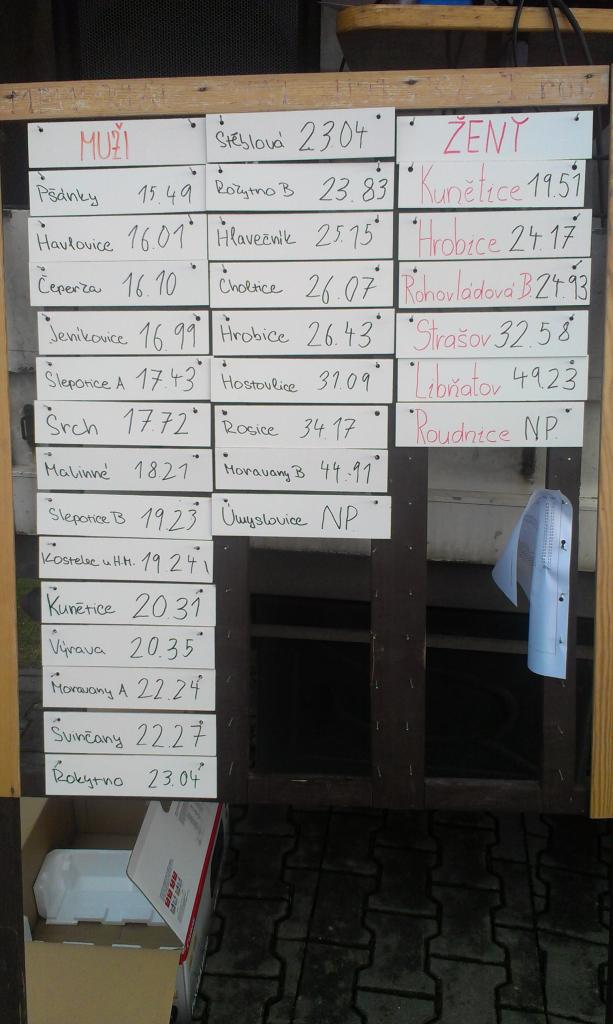 MUŽI
Pšánky 15.49
Havlovice 16.01
Čeperka 16.10
Jeníkovice 16.99
Slepotice A 17.43
Srch 17.72
Malinné 18.21
Slepotice B 19.23
Kostelec u H.M. 19.24
Kunětice 20.31
Výrava 20.35
Moravany A 22.24
Svinčany 22.27
Rokytno 23.04
Stéblová 23.04
Rokytno B 23.83
Hlavečník 25.15
Choltice 26.07
Hrobice 26.43
Hostovlice 31.09
Rosice 34.17
Moravany B 44.91
Úmyslovice NP
ŽENY
Kunětice 19.51
Hrobice 24.17
Rohovládová B. 24.93
Strašov 32.58
Libňatov 49.23
Roudnice NP.